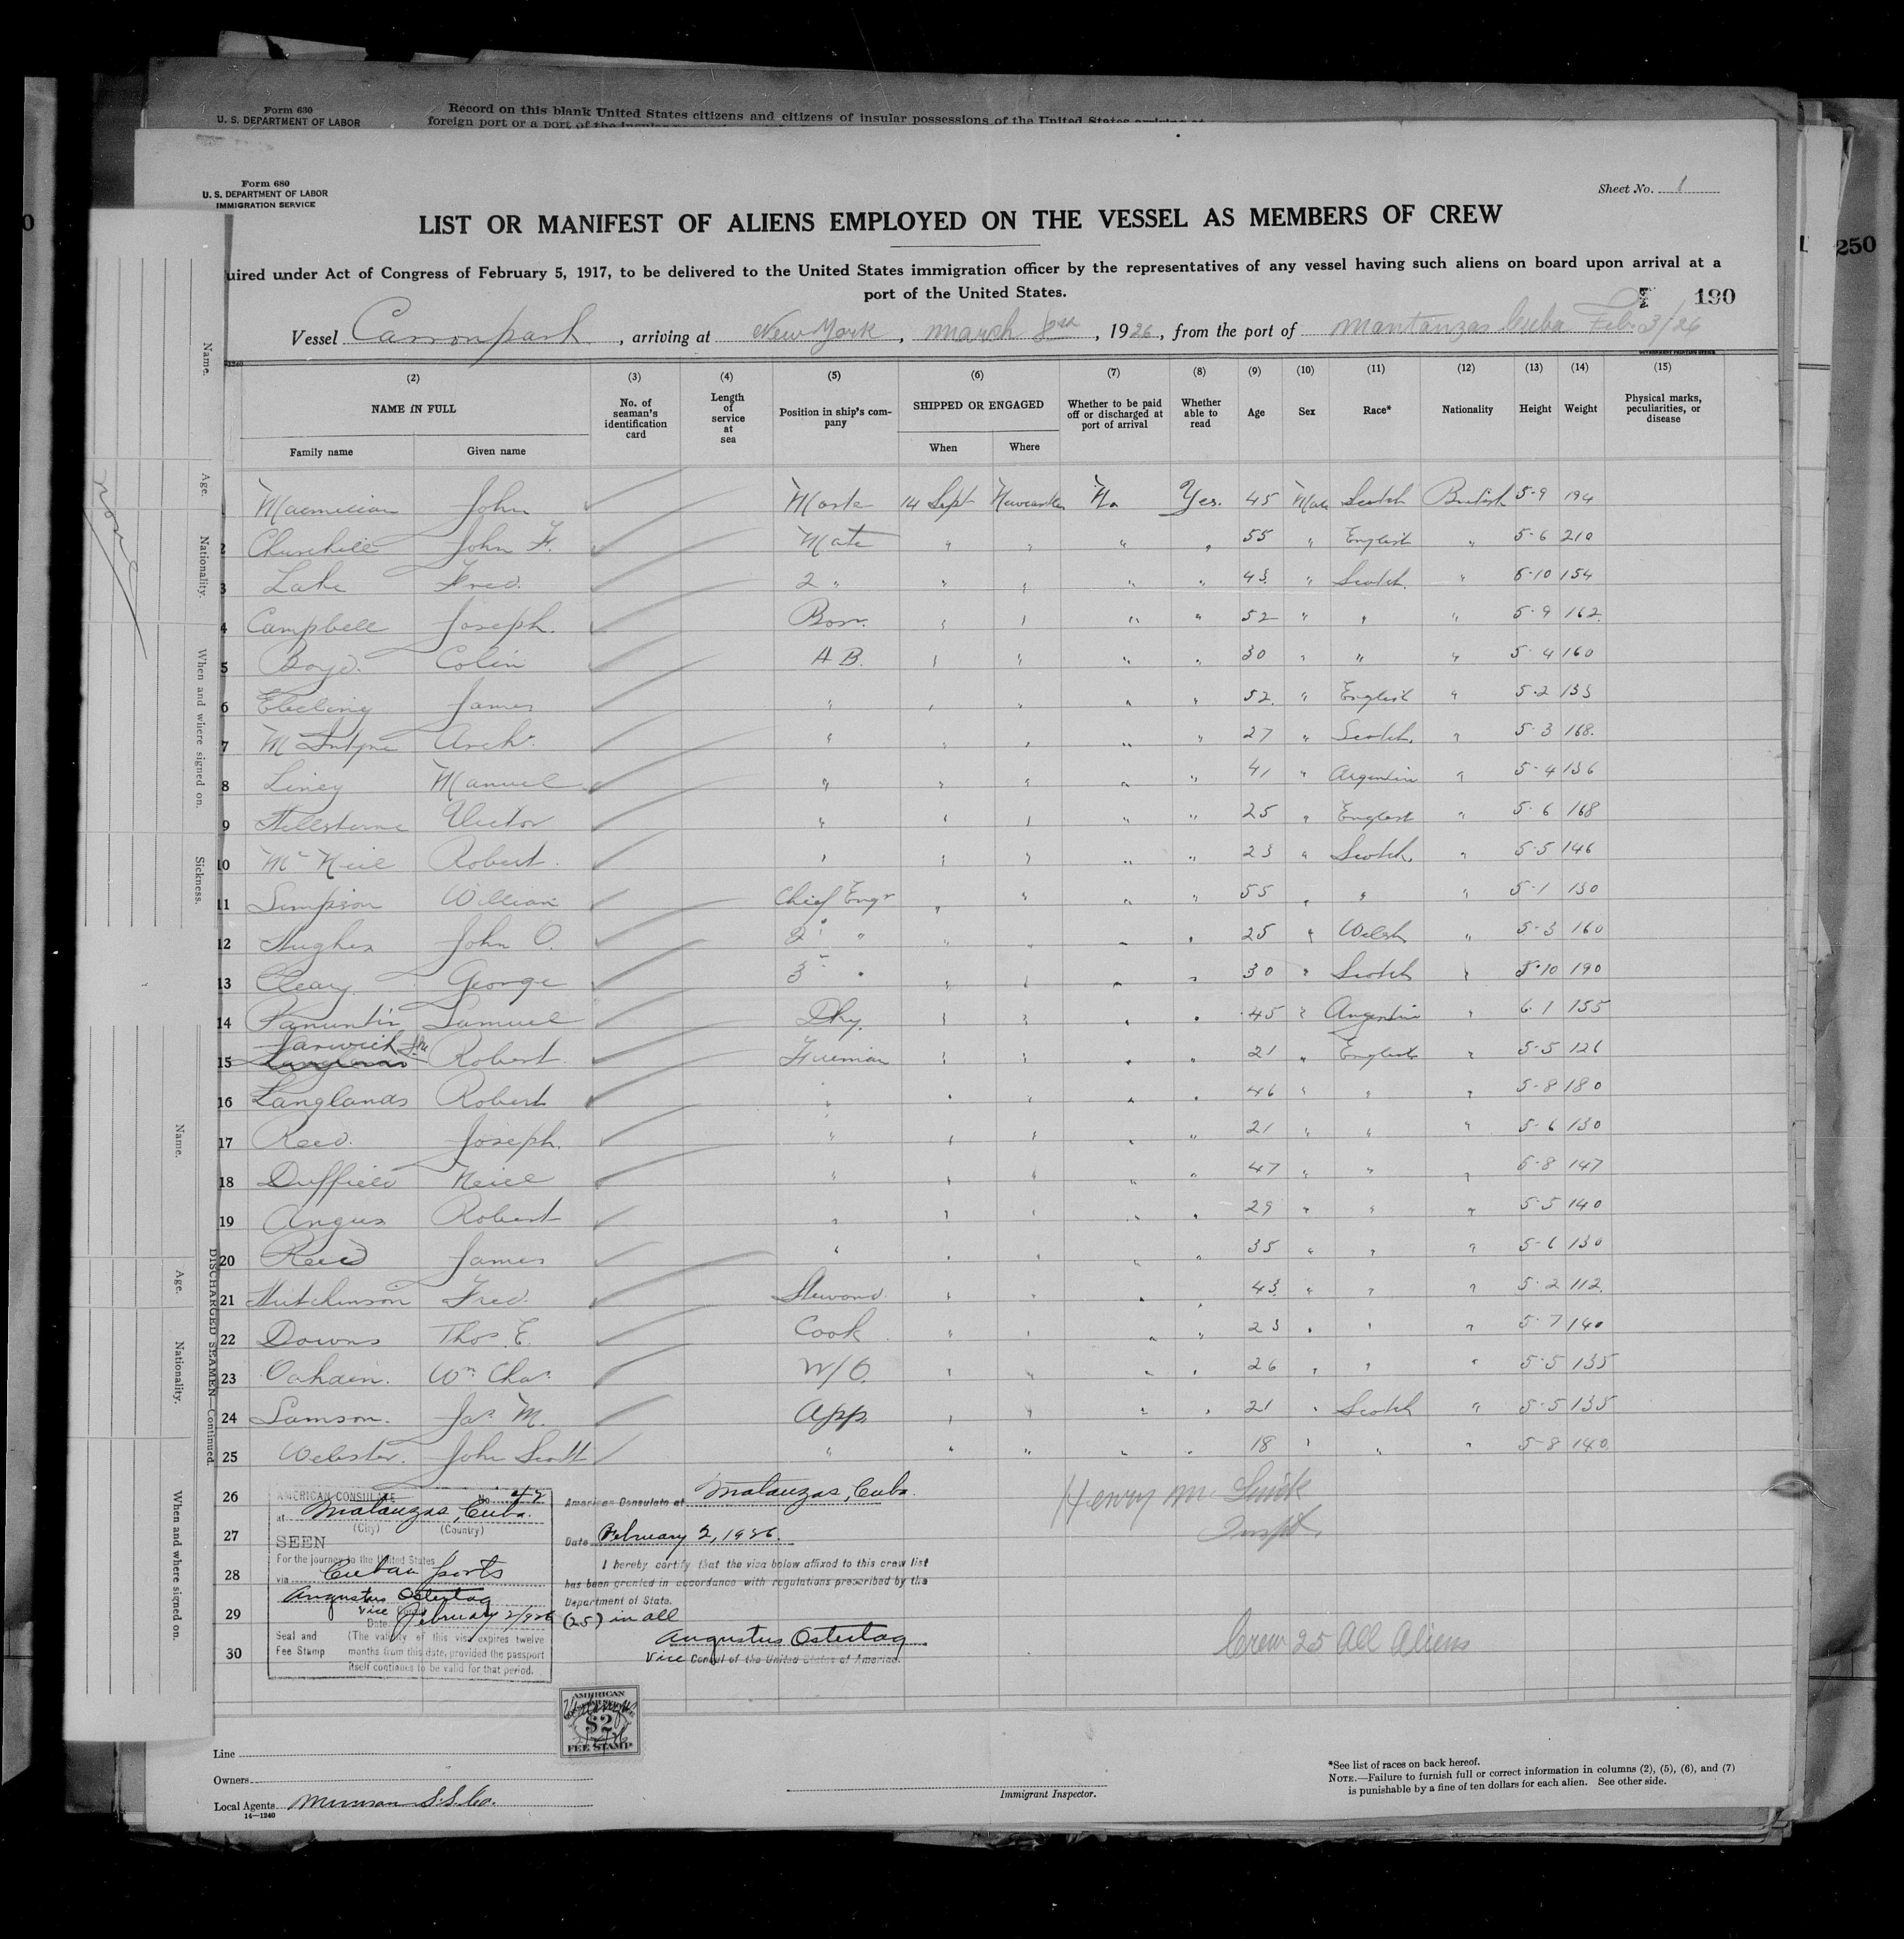 Form 630
U. S. DEPARTMENT OF LABOR
Record on this blank United States citizens and citizens of insular possessions of the United States arriving at
foreign port or a port of the insular
250
Form 680
U. S. DEPARTMENT OF LABOR
IMMIGRATION SERVICE
Sheet No. 1
LIST OR MANIFEST OF ALIENS EMPLOYED ON THE VESSEL AS MEMBERS OF CREW
uired under Act of Congress of February 5, 1917, to be delivered to the United States immigration officer by the representatives of any vessel having such aliens on board upon arrival at a
port of the United States.
190
Vessel Carronpark, arriving at New York, March, 1926, from the port of Mantanzas Cuba Feb. 3/26
(2) (3) (4) (5) (6) (7) (8) (9) (10) (11) (12) (13) (14) (15)
NAME IN FULL
Family name
Given name
No. of seaman's identification card
Length of service at sea
Position in ship's company
SHIPPED OR ENGAGED
When
Where
Whether to be paid off or discharged at port of arrival
Whether able to read
Age
Sex
Race*
Nationality
Height
Weight
Physical marks, peculiarities, or disease
John 14 Sept No Yes. 45 Male Scotch British 5-9 194
2 Churchill John F. Mate " " " " 55 " English " 5-6 210
3 Lake Fred. 2 " " " " " 43 " Scotch " 5-10 154
4 Campbell Joseph. Bosn. " " " " 52 " " " 5-9 162
5 Boyd. Colin A B. " " " " 30 " " " 5 4 160
6 James " " " " " 52 " English " 5-2 133
7 McIntyre Archd. " " " " " 27 " Scotch " 5-3 168
8 Liney Manuel " " " " " 41 " Argentin " 5-4 136
9 Victor " " " " " 25 " English " 5-6 168
10 Mc Neil Robert " " " " " 23 " Scotch " 5-5 146
11 Simpson William Chief Engr " " " " 55 " " " 5-1 130
12 Hughes John O. 2 " " " " " 25 " Welsh " 5-3 160
13 Cleary George 3 " " " " 30 " Scotch " 5-10 190
14 Samuel Dky. " " " " 45 " Argentin " 6-1 155
15 Robert Fireman " " " " 21 " English " 5-5 126
16 Langlands Robert " " " " " 46 " " " 5-8 180
17 Reed. Joseph. " " " " " 21 " " " 5-6 130
18 Duffield Neill " " " " " 47 " " " 5-8 147
19 Angus Robert " " " " " 29 " " " 5-5 140
20 Reed James " " " " " 35 " " " 5-6 130
21 Hutchinson Fred. Steward " " " " 43 " " " 5-2 112
22 Downs Thos E. Cook " " " " 23 " " " 5-7 140
23 Wm Chas. W/O. " " " " 26 " " " 5-5 135
24 Samson. Jas M. App " " " " 21 " Scotch " 5-5 135
25 Webster. John Scott " " " " " 18 " " " 5-8 140
26
27
28
29
30
AMERICAN CONSULATE No. 42
at Matanzas, Cuba.
(City) (Country)
SEEN
For the journey to the United States
via Cuban ports
Augustus Ostertag
Vice Consul
Date February 2/926
Seal and Fee Stamp
(The validity of this visa expires twelve
months from this date, provided the passport
itself continues to be valid for that period.
American Consulate at Matanzas, Cuba.
Date February 2, 1926.
I hereby certify that the visa below affixed to this crew list
has been granted in accordance with regulations prescribed by the
Department of State.
(25) in all
Augustus Ostertag
Vice Consul of the United States of America.
Henry
Inspt.
Crew 25 All Aliens
AMERICAN
$2
FEE STAMP
Line
Owners
Local Agents Munson S.S. Co.
14—1240
Immigrant Inspector.
*See list of races on back hereof.
NOTE.—Failure to furnish full or correct information in columns (2), (5), (6), and (7)
is punishable by a fine of ten dollars for each alien. See other side.
Name.
Age.
Nationality.
When and where signed on.
Sickness.
Name.
Age.
Nationality.
When and where signed on.
DISCHARGED SEAMEN—Continued.